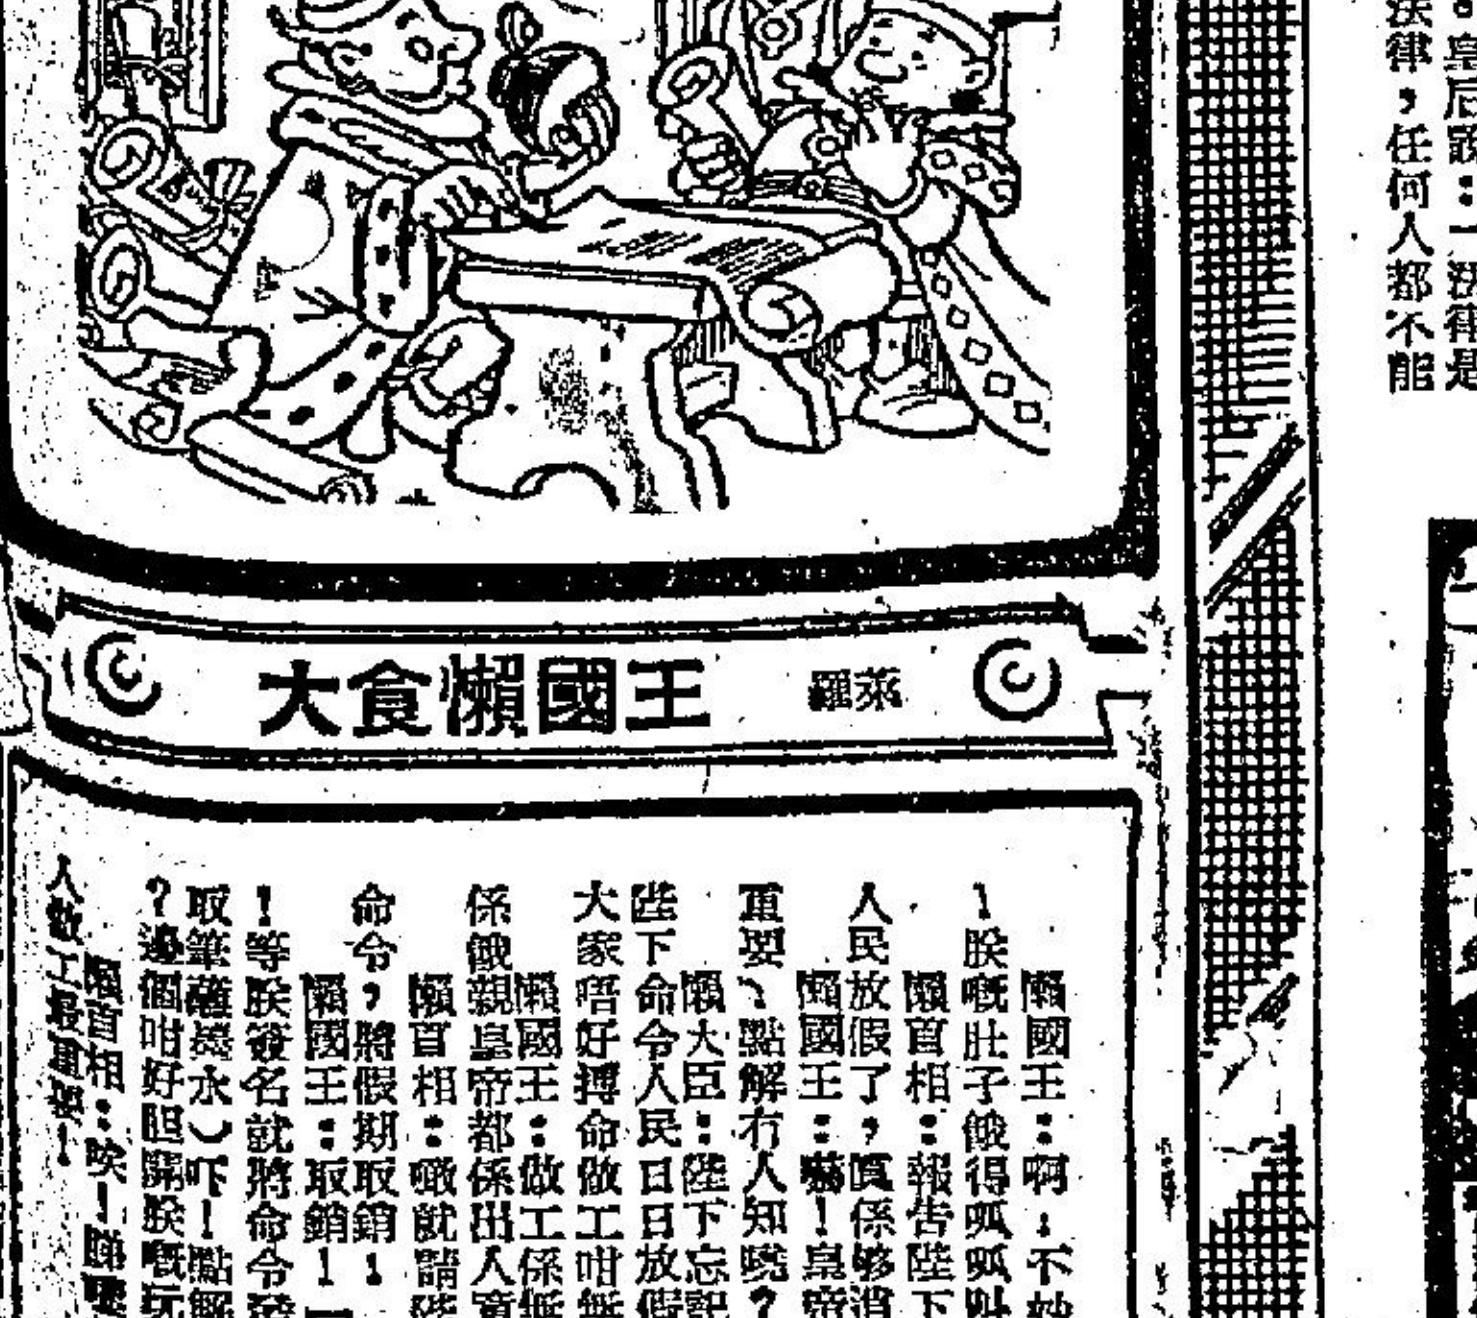 皇后說：一法律是
法律，任何人都不能
大食懶國王 羅萊
懶國王：啊！不妙
！朕嘅肚子餓得呱呱叫
懶首相：報告陛下
人民放假了，真係够消
懶國王：嚇！皇帝
重要，點解冇人知曉？
懶大臣：陛下忘記
陛下命令人民日日放假
大家唔好搏命做工咁無
懶國王：做工係無
係餓親皇帝都係出人意
懶首相：噉就請陛
命令，將假期取銷！
懶國王：取銷！
！等朕簽名就將命令發
取筆蘸墨水）吓！點解
？邊個咁好胆開朕嘅玩
懶首相：唉！睇嚟
人做工最重要！